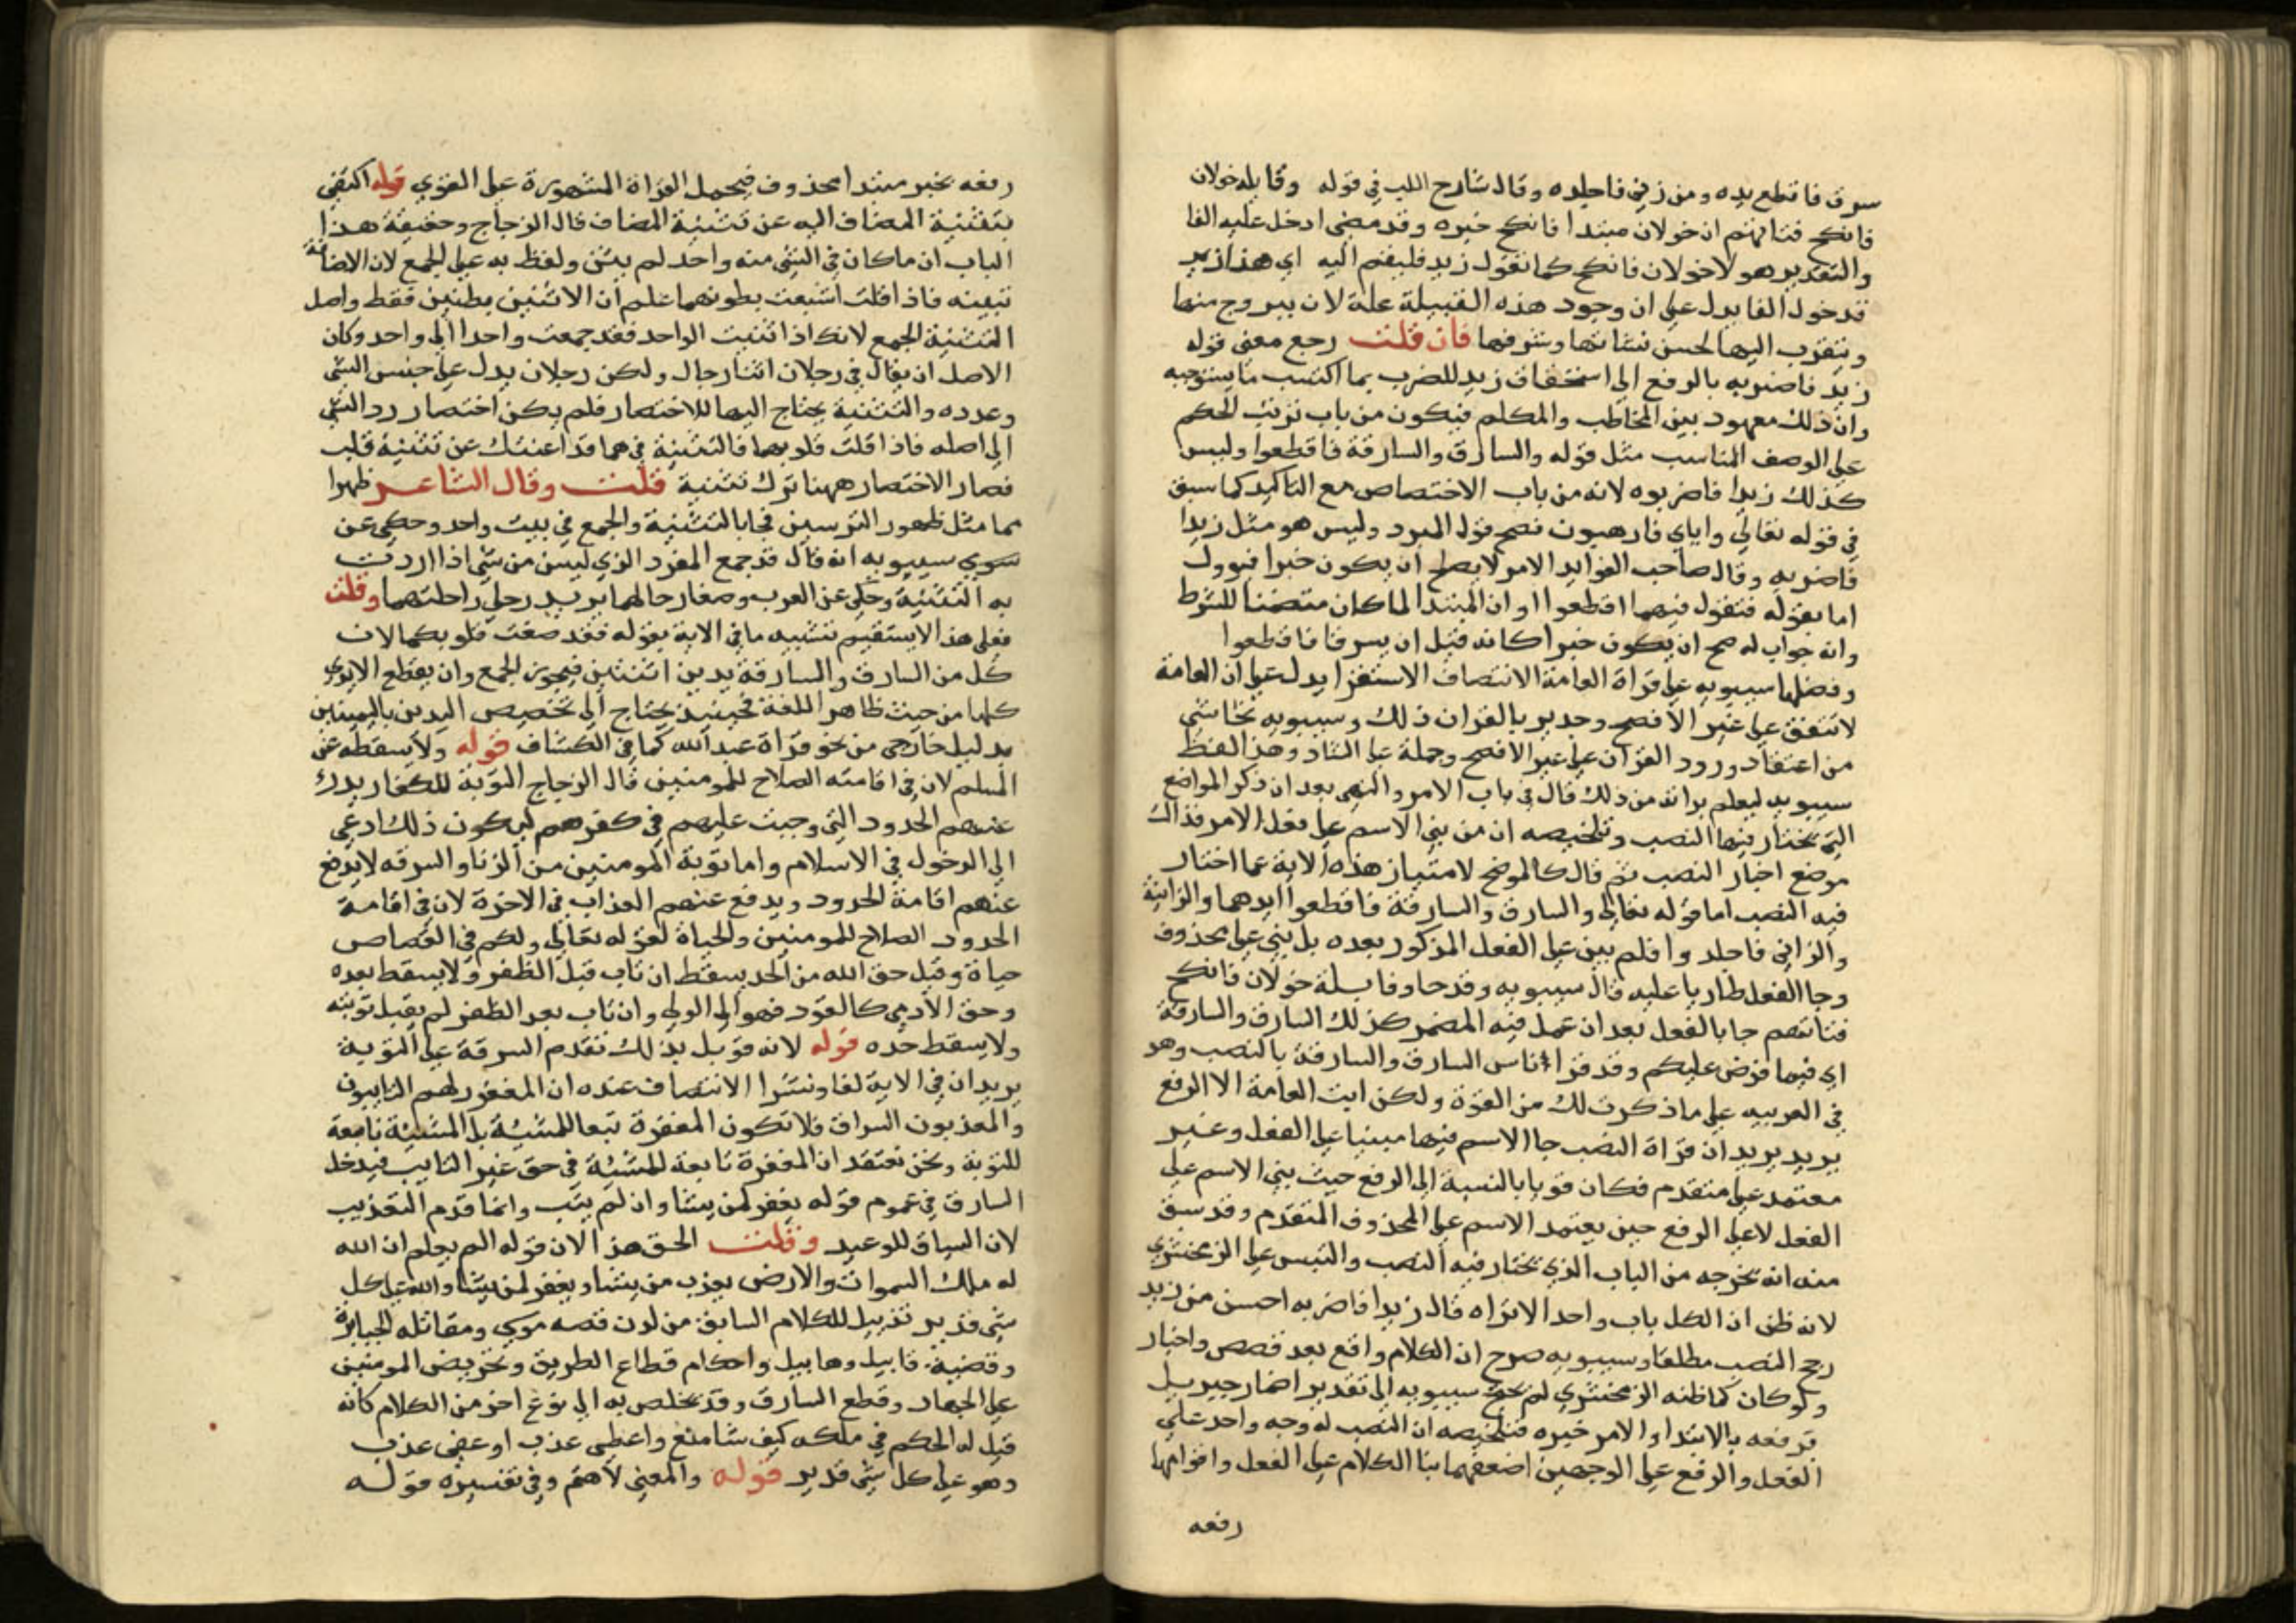 سرق فاقطع يده ومن زنى فاجلده وقال شارح اللب في قوله وقايله خولان
فانكح فتاتهم ان خولان مبتدا فانكح خبره وقد مضى ادخل عليه الفا
والتقدير هولا خولان فانكح كما تقول زيد فليقم اليه اي هذا زيد
فدخول الفا يدل على ان وجود هذه القبيلة علة لان يتزوج منها
ويتقرب اليها لحسن نسايها وشرفها فان قلت رجع معنى قوله
زيد فاضربه بالرفع الى استحقاق زيد للضرب بما اكتسب ما يستوجبه
وان ذلك معهود بين المخاطب والمكلم فيكون من باب ترتب الحكم
على الوصف المناسب مثل قوله والسارق والسارقة فاقطعوا وليس
كذلك زيدا فاضربوه لانه من باب الاختصاص مع التاكيد كما سبق
في قوله تعالى واياي فارهبون فصح قول المبرد وليس هو مثل زيدا
فاضربه وقال صاحب الفوايد الامر لا يصلح ان يكون خبرا فيوول
اما بقوله فتقول فيهما اقطعوا او ان المبتدا لما كان متضمنا للشرط
وانه جواب له صح ان يكون خبرا كانه قيل ان يسرقا فاقطعوا
وفضلها سيبويه على قراة العامة الانتصاف الاستقرا يدل على ان العامة
لا تتفق على غير الافصح وجدير بالقران ذلك وسيبويه تحاشى
من اعتقاد ورود القران على غير الافصح وجملة على الشاد وهذا لفظ
سيبويه ليعلم براته من ذلك قال في باب الامر والنهي بعد ان ذكر المواضع
التي يختار فيها النصب وتلخيصه ان من بنى الاسم على فعل الامر فذاك
موضع اختيار النصب ثم قال كالموضح لامتياز هذه الاية عما اختار
فيه النصب اما قوله تعالى والسارق والسارقة فاقطعوا ايديهما والزانية
والزاني فاجلدوا فلم يبن على الفعل المذكور بعده بل بني على محذوف
وجا الفعل طاريا عليه قال سيبويه وقد جا وقايلة خولان فانكح
فتاتهم جا بالفعل بعد ان عمل فيه المضمر كذلك السارق والسارقة
اي فيما فرض عليكم وقد قرا اناس السارق والسارقة بالنصب وهو
في العربيه على ما ذكرت لك من القوة ولكن ابت العامة الا الرفع
يريد يريد ان قراة النصب جا الاسم فيها مبنيا على الفعل وغير
معتمد على متقدم فكان قويا بالنسبة الى الرفع حيث بني الاسم على
الفعل لا على الرفع حين يعتمد الاسم على المحذوف المتقدم وقد سبق
منه انه يخرجه من الباب الذي يختار فيه النصب والتبس على الزمخشري
لانه ظن ان الكل باب واحد الا تراه قال زيدا فاضربه احسن من زيد
رجح النصب مطلقا وسيبويه صرح ان الكلام واقع بعد قصص واخبار
ولو كان كما ظنه الزمخشري لم يحتج سيبويه الى تقدير اضمار خبر بل
يرفعه بالابتدا والامر خبره فتلخيصه ان النصب له وجه واحد على
الفعل والرفع على الوجهين اضعفهما بنا الكلام على الفعل واقواهما
رفعه
رفعه بخبر مبتدا محذوف فيحمل القراة المشهورة على القوي قوله اكتفي
بتثنية المضاف اليه عن تثنية المضاف قال الزجاج وحقيقة هذا
الباب ان ما كان في الشي منه واحد لم يثن ولفظ به على الجمع لان الاضافة
تبينه فاذا قلت اشبعت بطونهما علم ان الاثنين بطنين فقط واصل
التثنية الجمع لانك اذا اثنيت الواحد فقد جمعت واحدا الى واحد وكان
الاصل ان يقال في رجلان اثنا رجال ولكن رجلان يدل على جنس الشي
وعدده والتثنية يحتاج اليها للاختصار فلم يكن اختصار رد الشي
الى اصله فاذا قلت قلوبهما فالتثنية في هما قد اغنتك عن تثنية قلب
فصار الاختصار ههنا ترك تثنية قلت وقال الشاعر ظهرا
هما مثل ظهور الترسين فجا بالتثنية والجمع في بيت واحد وحكى عن
سوي سيبويه انه قال قد جمع المفرد الذي ليس من شي اذا اردت
به التثنية وحكى عن العرب وضعا رحالهما يريد رحلي راحلتهما وقلت
فعلى هذا لا يستقيم تشبيه ما في الاية بقوله فقد صغت قلوبكما لان
كل من السارق والسارقة يدين اثنتين فيجوز الجمع وان يقطع الايدي
كلها من حيث ظاهر اللغة فحينيذ يحتاج الى تخصيص اليدين باليمينين
بدليل خارجي من نحو قراة عبد الله كما في الكشاف قوله ولا يسقطه عن
المسلم لان في اقامته الصلاح للمومنين قال الزجاج التوبة للكفار يدرا
عنهم الحدود التي وجبت عليهم في كفرهم ليكون ذلك ادعى
الى الدخول في الاسلام واما توبة المومنين من الزنا والسرقه لا يدفع
عنهم اقامة الحدود ويدفع عنهم العذاب في الاخرة لان في اقامة
الحدود الصلاح للمومنين والحياة لقوله تعالى ولكم في القصاص
حياة وقيل حق الله من الحد يسقط ان تاب قبل الظفر ولا يسقط بعده
وحق الادمي كالقود فهو الى الولي وان تاب بعد الظفر لم يقبل توبته
ولا يسقط حده قوله لانه قوبل بذلك تقدم السرقة على التوبة
يريد ان في الاية لفا ونشرا الانتصاف عنده ان المغفور لهم التايبون
والمعذبون السراق فلا تكون المغفرة تبعا للمشية بل المشية تابعة
للتوبة ونحن نعتقد ان المغفرة تابعة للمشية في حق غير التايب فيدخل
السارق في عموم قوله يغفر لمن يشا وان لم يتب وانما قدم التعذيب
لان السياق للوعيد وقلت الحق هذا لان قوله الم يعلم ان الله
له ملك السموات والارض يعذب من يشا ويغفر لمن يشا والله على كل
شي قدير تذييل للكلام السابق من لدن قصه موسى ومقاتله الجبابرة
وقضية قابيل وهابيل واحكام قطاع الطريق وتحريض المومنين
على الجهاد وقطع السارق وقد تخلص به الى نوع اخر من الكلام كانه
قيل له الحكم في ملكه كيف شا منع واعطى عذب او عفى عذب
وهو على كل شي قدير قوله والمعنى لا تهتم وفي تفسيره قوله